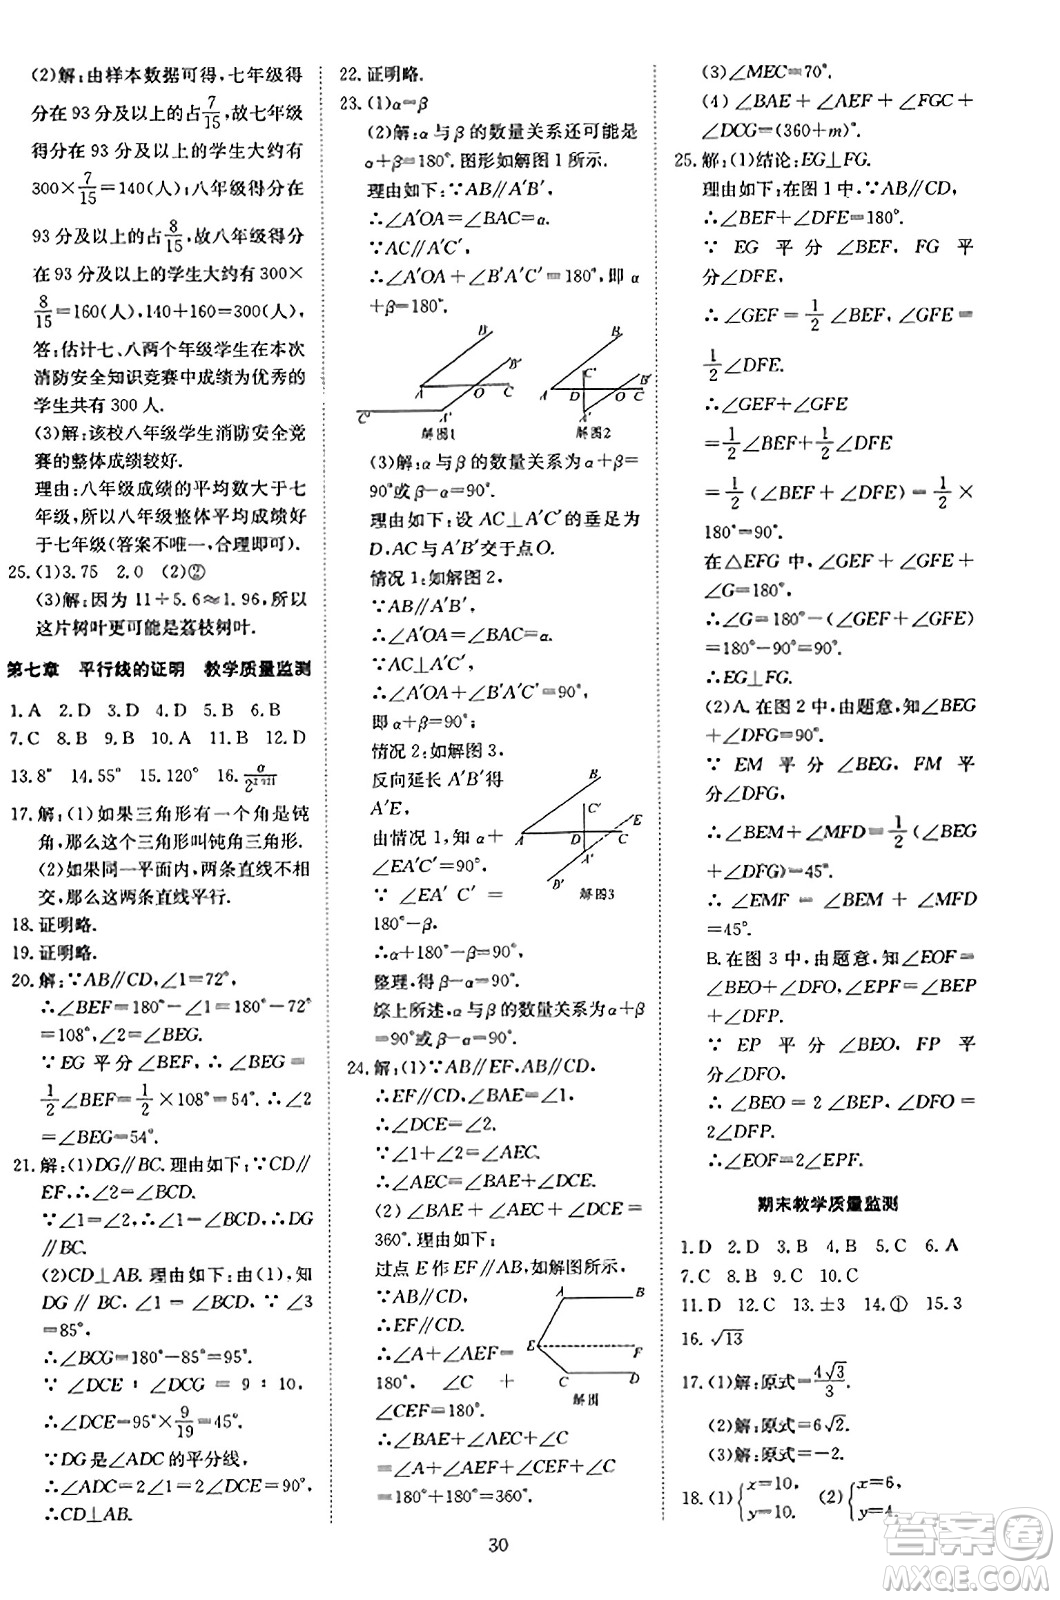 (2)解:由样本数据可得,七年级得
分在 93 分及以上的占7/15,故七年级
得分在 93 分及以上的学生大约有
300×7/15=140(人);八年级得分在
93 分及以上的占8/15,故八年级得分
在 93 分及以上的学生大约有 300×
8/15=160(人),140+160=300(人).
答:估计七、八两个年级学生在本次
消防安全知识竞赛中成绩为优秀的
学生共有 300 人.
(3)解:该校八年级学生消防安全竞
赛的整体成绩较好.
理由:八年级成绩的平均数大于七
年级,所以八年级整体平均成绩好
于七年级(答案不唯一,合理即可).
25.(1)3.75 2.0 (2)②
(3)解:因为 11÷5.6≈1.96,所以
这片树叶更可能是荔枝树叶.
第七章 平行线的证明 教学质量监测
1.A 2.D 3.D 4.D 5.B 6.B
7.C 8.B 9.B 10.A 11.B 12.D
13.8° 14.55° 15.120° 16.
17.解:(1)如果三角形有一个角是钝
角,那么这个三角形叫钝角三角形.
(2)如果同一平面内,两条直线不相
交,那么这两条直线平行.
18.证明略.
19.证明略.
20.解:∵AB∥CD,∠1=72°,
∴∠BEF=180°-∠1=180°-72°
=108°,∠2=∠BEG.
∵EG 平分∠BEF,∴∠BEG=
1/2∠BEF=1/2×108°=54°.∴∠2
=∠BEG=54°.
21.解:(1)DG∥BC.理由如下:∵CD∥
EF,∴∠2=∠BCD.
∵∠1=∠2,∴∠1=∠BCD,∴DG
∥BC.
(2)CD⊥AB.理由如下:由(1),知
DG∥BC,∠1=∠BCD,∵∠3
=85°,
∴∠BCG=180°-85°=95°.
∵∠DCE:∠DCG=9:10,
∴∠DCE=95°×9/19=45°.
∵DG 是∠ADC 的平分线,
∴∠ADC=2∠CDG=90°,
∴CD⊥AB.
22.证明略.
23.(1)α=β
(2)解:α 与 β 的数量关系还可能是
α+β=180°.图形如解图 1 所示.
理由如下:∵AB∥A′B′,
∴∠A′OA=∠BAC=α.
∵AC∥A′C′,
∴∠A′OA+∠B′A′C′=180°,即 α
+β=180°.
B B′ A O C C′ A′
解图1
B C′ B′ A D O C A′
解图2
(3)解:α 与 β 的数量关系为 α+β=
90°或 β-α=90°.
理由如下:设 AC⊥A′C′的垂足为
D,AC 与 A′B′交于点 O.
情况 1:如解图 2,
∵AB∥A′B′,
∴∠A′OA=∠BAC=α.
∵AC⊥A′C′,
∴∠A′OA+∠B′A′C′=90°,
即 α+β=90°;
情况 2:如解图 3,
反向延长 A′B′得
A′E,
由情况 1,知 α+
∠EA′C′=90°.
∵∠EA′C′=
180°-β,
∴α+180°-β=90°.
整理,得 β-α=90°.
B C′ E A D C A′ B′
解图3
综上所述,α 与 β 的数量关系为 α+β
=90°或 β-α=90°.
24.解:(1)∵AB∥EF,AB∥CD,
∴EF∥CD,∠BAE=∠1,
∴∠DCE=∠2.
∵∠1+∠2=∠AEC,
∴∠AEC=∠BAE+∠DCE.
(2)∠BAE+∠AEC+∠DCE=
360°.理由如下:
过点 E 作 EF∥AB,如解图所示,
∵AB∥CD,
∴EF∥CD.
∴∠A+∠AEF=
180°,∠C+
∠CEF=180°,
A B E F C D
解图
∴∠BAE+∠AEC+∠DCE
=∠A+∠AEF+∠CEF+∠C
=180°+180°=360°.
(3)∠MEC=70°.
(4)∠BAE+∠AEF+∠FGC+
∠DCG=(360+m)°.
25.解:(1)结论:EG⊥FG.
理由如下:在图 1 中,∵AB∥CD,
∴∠BEF+∠DFE=180°.
∵EG 平分∠BEF,FG 平
分∠DFE,
∴∠GEF=1/2∠BEF,∠GFE=
1/2∠DFE.
∴∠GEF+∠GFE
=1/2∠BEF+1/2∠DFE
=1/2(∠BEF+∠DFE)=1/2×
180°=90°.
在△EFG 中,∠GEF+∠GFE+
∠G=180°,
∴∠G=180°-(∠GEF+∠GFE)
=180°-90°=90°,
∴EG⊥FG.
(2)A.在图 2 中,由题意,知∠BEG
+∠DFG=90°.
∵EM 平分∠BEG,FM 平
分∠DFG,
∴∠BEM+∠MFD=1/2(∠BEG
+∠DFG)=45°,
∴∠EMF=∠BEM+∠MFD
=45°.
B.在图 3 中,由题意,知∠EOF=
∠BEO+∠DFO,∠EPF=∠BEP
+∠DFP.
∵EP 平分∠BEO,FP 平
分∠DFO.
∴∠BEO=2∠BEP,∠DFO=
2∠DFP.
∴∠EOF=2∠EPF.
期末教学质量监测
1.D 2.D 3.B 4.B 5.C 6.A
7.C 8.B 9.C 10.C
11.D 12.C 13.±3 14.① 15.3
16.√13
17.(1)解:原式=4√3/3.
(2)解:原式=6√2.
(3)解:原式=-2.
18.(1){x=10, y=10. (2){x=6, y=4.
30
答案圈
MXQE.COM